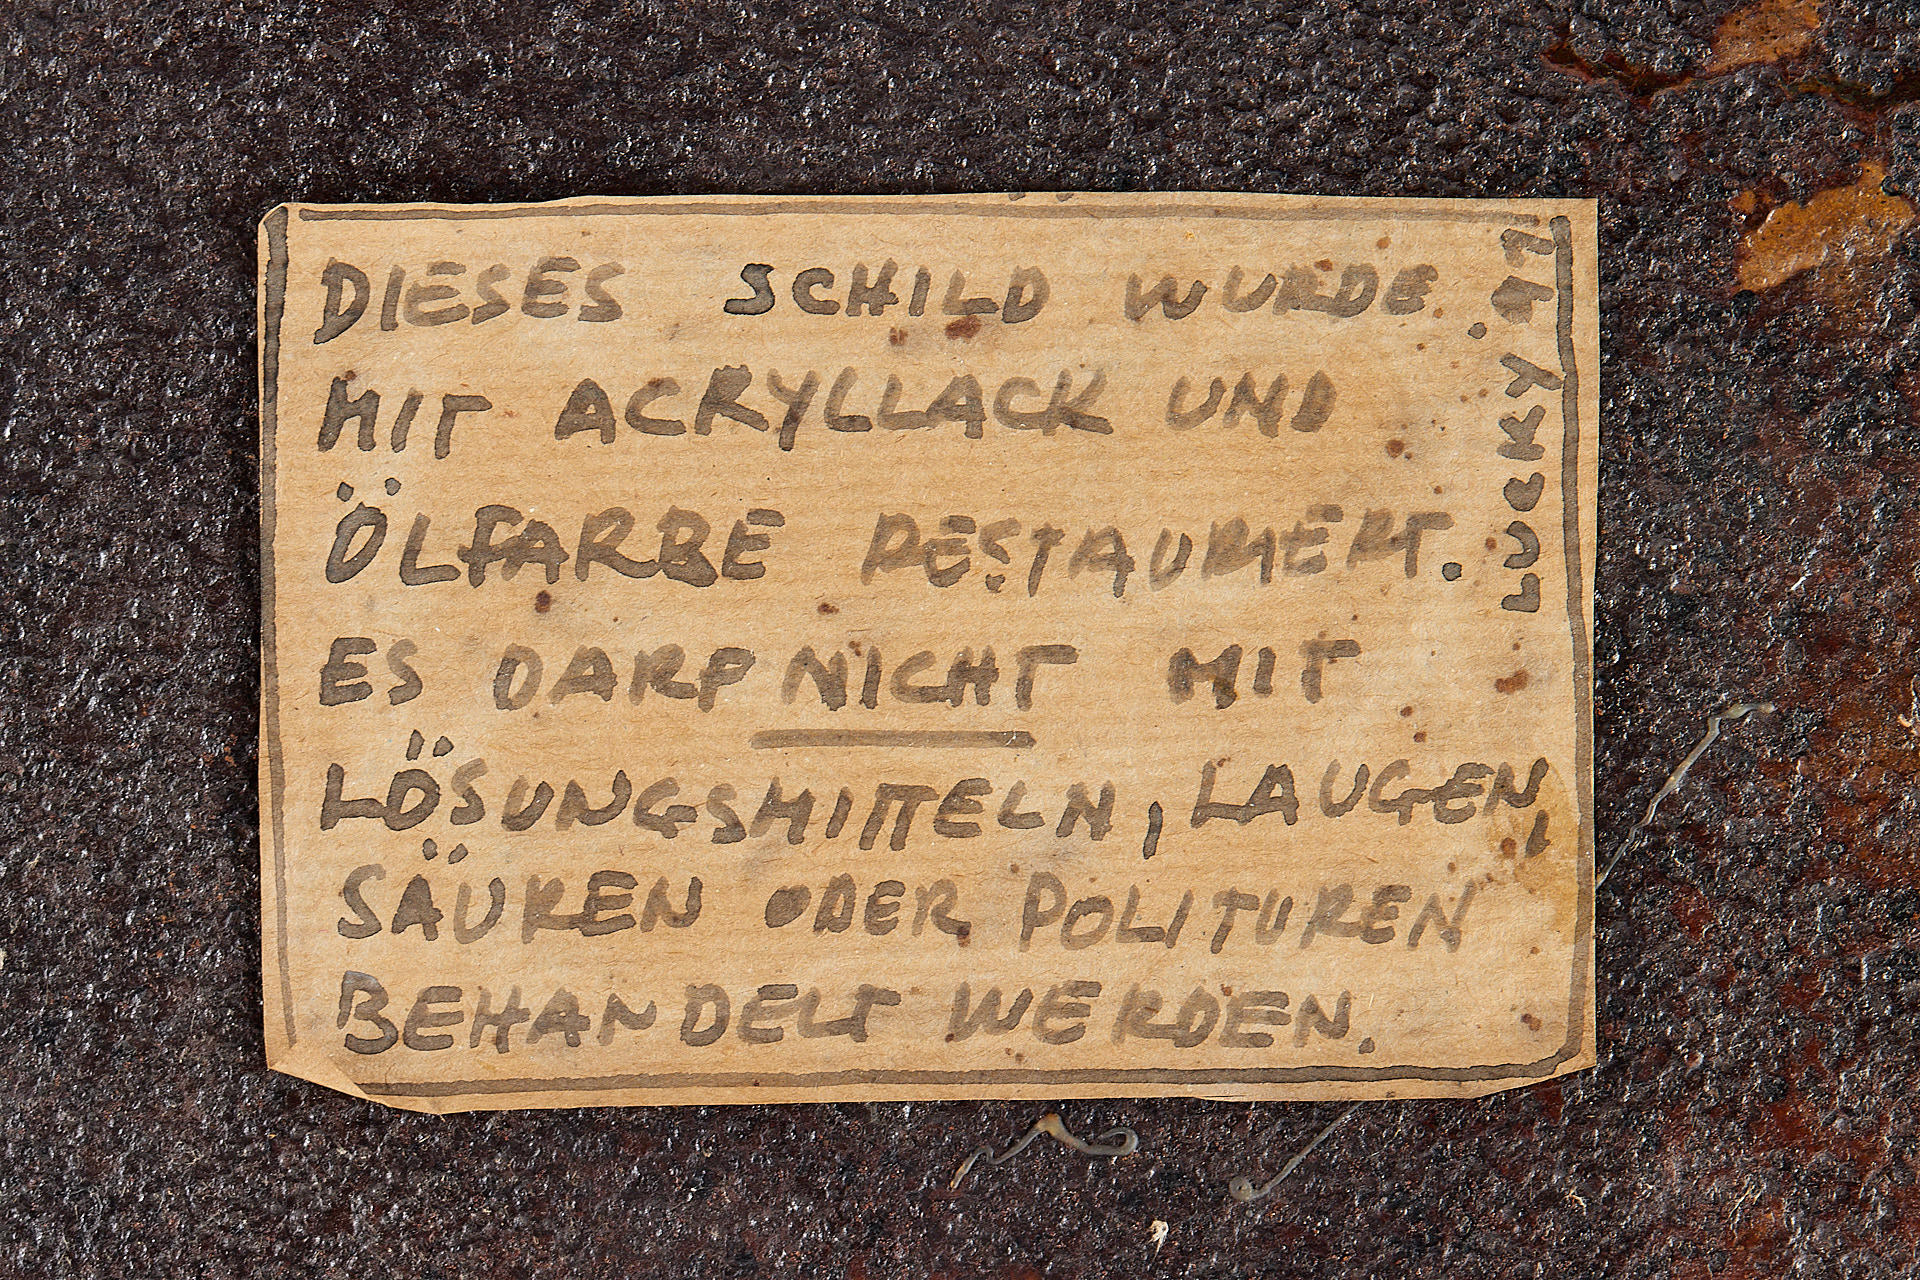 DIESES SCHILD WURDE
MIT ACRYLLACK UND
ÖLFARBE RESTAURIERT.
ES DARF NICHT MIT
LÖSUNGSMITTELN, LAUGEN,
SÄUREN ODER POLITUREN
BEHANDELT WERDEN.
LUCKY